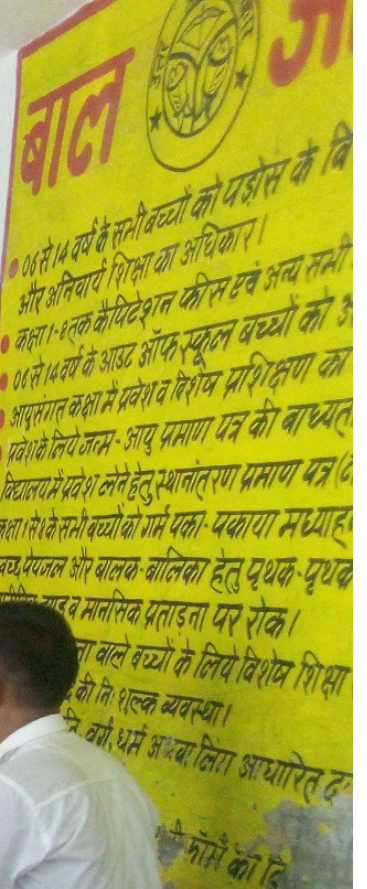 बाल
06 से 14 वर्ष के सभी बच्चों को पड़ोस के वि
और अनिवार्य शिक्षा का अधिकार।
कक्षा 1-8 तक कैपिटेशन फीस एवं अन्य सभी
06 से 14 वर्ष के आउट ऑफ स्कूल बच्चों को
आयुसंगत कक्षा में प्रवेश व विशेष प्रशिक्षण का
प्रवेश के लिये जन्म-आयु प्रमाण पत्र की बाध्यता
विद्यालय में प्रवेश लेने हेतु स्थानांतरण प्रमाण पत्र
कक्षा 1 से 8 के सभी बच्चों को गर्म पका-पकाया मध्याह्न
पेयजल और बालक-बालिका हेतु पृथक-पृथक
व मानसिक प्रताड़ना पर रोक।
वाले बच्चों के लिये विशेष शिक्षा
की निःशुल्क व्यवस्था।
वर्ग, धर्म अथवा लिंग आधारित